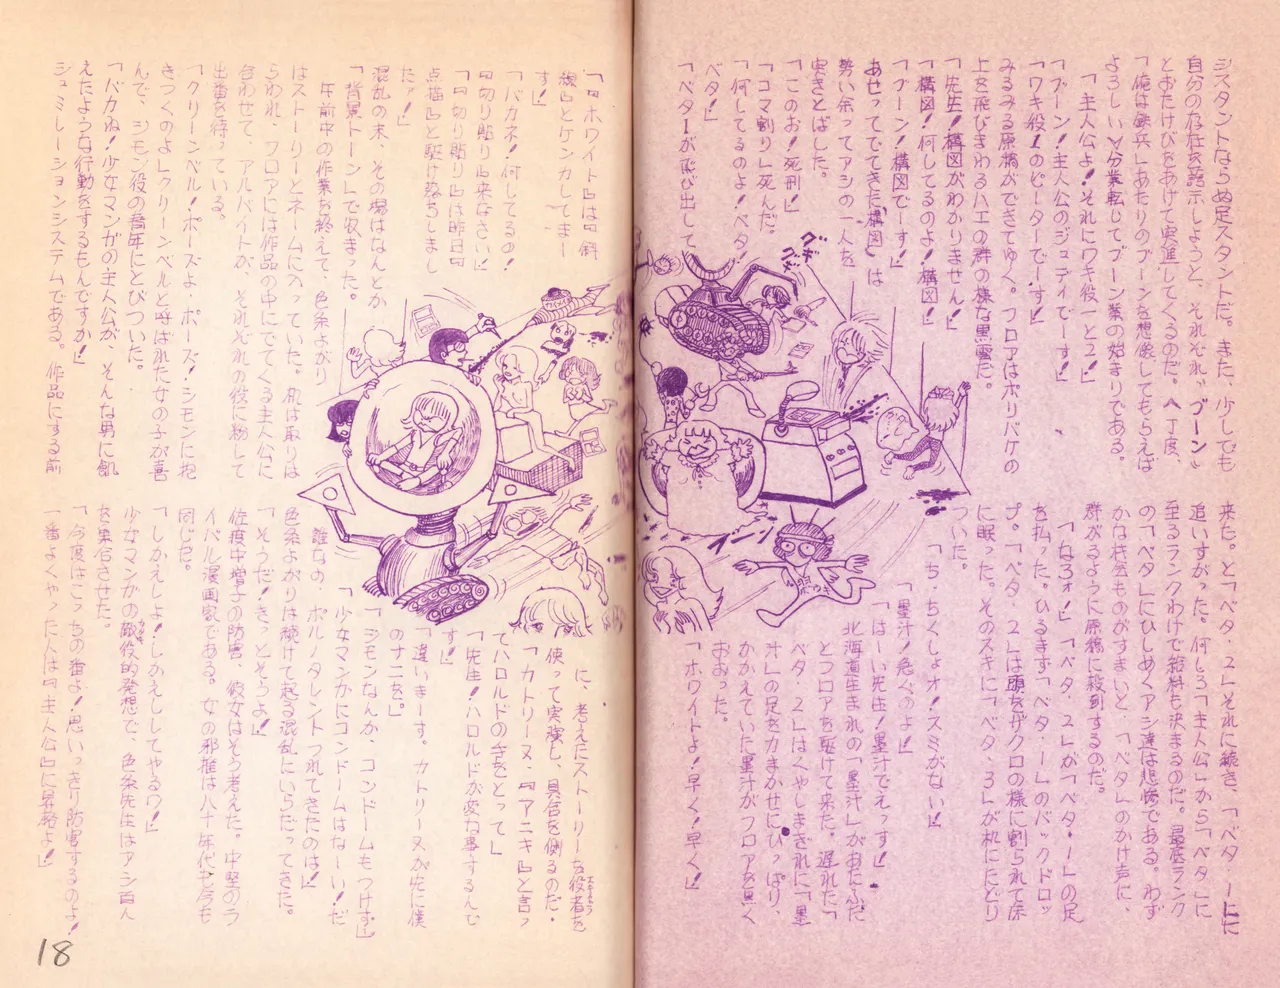 ジスタントならぬ足スタントだ。また、少しでも
自分の存在を誇示しようと、それぞれ〝ブーン〟
とおたけびをあげて突進してくるのだ。へ丁度、
「俺は鉄兵」あたりのブーンを想像してもらえば
よろしい∨分業転じてブーン業の始まりである。
「主人公よ!それにワキ役1と2!」
「ブーン!主人公のジュディでーす!」
「ワキ役1のピーターでーす!」
みるみる原稿ができてゆく。フロアはホリバケの
上を飛びまわるハエの群の様な黒雲だ。
「先生!構図がわかりません!」
「構図!何してるのよ!構図!」
「ブーン!構図でーす!」
あせってでてきた「構図」は
勢い余ってアシの一人を
突きとばした。
「このお!死刑!」
「コマ割り」死んだ。
「何してるのよ!ベタ
ベタ!」
「ベターが飛び出して
来た。と「ベタ・2」それに続き、「ベタ・1」に
追いすがった。何しろ「主人公」から「ベタ」に
至るランクわけで給料も決まるのだ。最底ランク
の「ベタ」にひしめくアシ達は悲惨である。わず
かな機会ものがすまいと、「ベタ」のかけ声に、
群がるように原稿に殺到するのだ。
「なろォ!」「ベタ・2」が「ベタ・1」の足
を払った。ひるまず「ベタ・1」のバックドロッ
プ。「ベタ・2」は頭をザクロの様に割られて床
に眠った。そのスキに「ベタ・3」が机にたどり
ついた。
「ち、ちくしょオ!スミがない!」
「墨汁!急ぐのよ!」
「はーい先生!墨汁でえっす!」
北海道生まれの「墨汁」があたふた
とフロアを駆けて来た。遅れた「
ベタ・2」はくやしまぎれに「墨
汁」の足を力まかせにひっぱり、
かかえていた墨汁がフロアを黒く
おおった。
「ホワイトよ!早く!早く!」
グギ
グギ
「『ホワイト』は『斜
線』とケンカしてまー
す!」
「バカネ!何してるの!
『切り貼り』来なさい!」
「『切り貼り』は昨日『
点描』と駆け落ちしまし
たァ!」
混乱の末、その場はなんとか
「背景トーン」で収まった。
午前中の作業を終えて、色条よがり
はストーリーとネームに入っていた。机は取りは
らわれ、フロアには作品の中にでてくる主人公に
合わせて、アルバイトが、それぞれの役に扮して
出番を待っている。
「クリーンベル!ポーズよ・ポーズ!シモンに抱
きつくのよ」クリーンベルと呼ばれた女の子が喜
んで、シモン役の青年にとびついた。
「バカね!少女マンガの主人公が、そんな男に飢
えたような行動をするもんですか!」
シュミレーションシステムである。作品にする前
に、考えたストーリーを役者を
使って実演し、具合を測るのだ・
「カトリーヌ、『アニキ』と言っ
てハロルドの手をとって」
「先生!ハロルドが変な事するんで
す!」
「違いまーす。カトリーヌが先に僕
のナニを。」
「シモンなんか、コンドームもつけず」
「少女マンガにコンドームはなーい!だ
誰なの、ポルノタレントつれてきたのは!」
色条よがりは続けて起る混乱にいらだってきた。
「そうだ!きっとそうよ!」
佐渡中増子の防害、彼女はそう考えた。中堅のラ
イバル漫画家である。女の邪推は八十年代も今も
同じだ。
「しかえしよ!しかえししてやるワ!」
少女マンガの敵役的発想で、色条先生はアシ百人
を集合させた。
「今度はこっちの番よ!思いっきり防害するのよ!
一番よくやった人は『主人公』に昇格よ!」
18